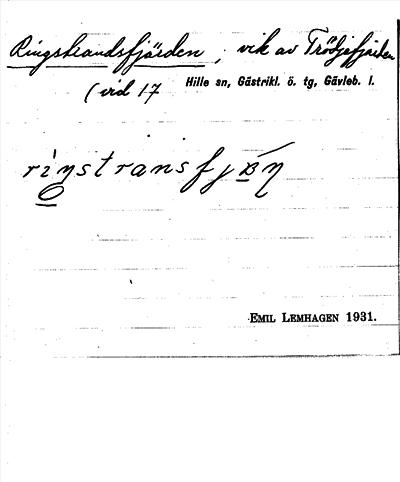 Ringstrandsfjärden, vik av Trödjefjärden
(vid 17 Hille sn, Gästrikl. ö. tg, Gävleb. l.
EMIL LEMHAGEN 1931.